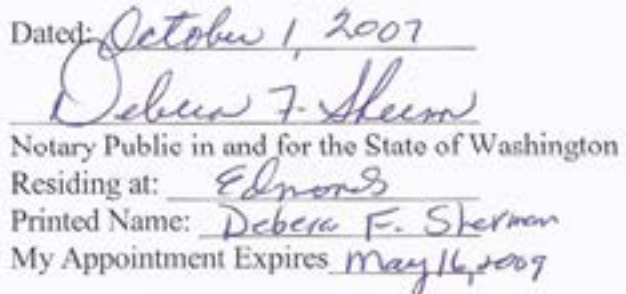 Dated: October 1, 2007
Debera F. Sherman
Notary Public in and for the State of Washington
Residing at: Edmonds
Printed Name: Debera F. Sherman
My Appointment Expires May 16, 2009